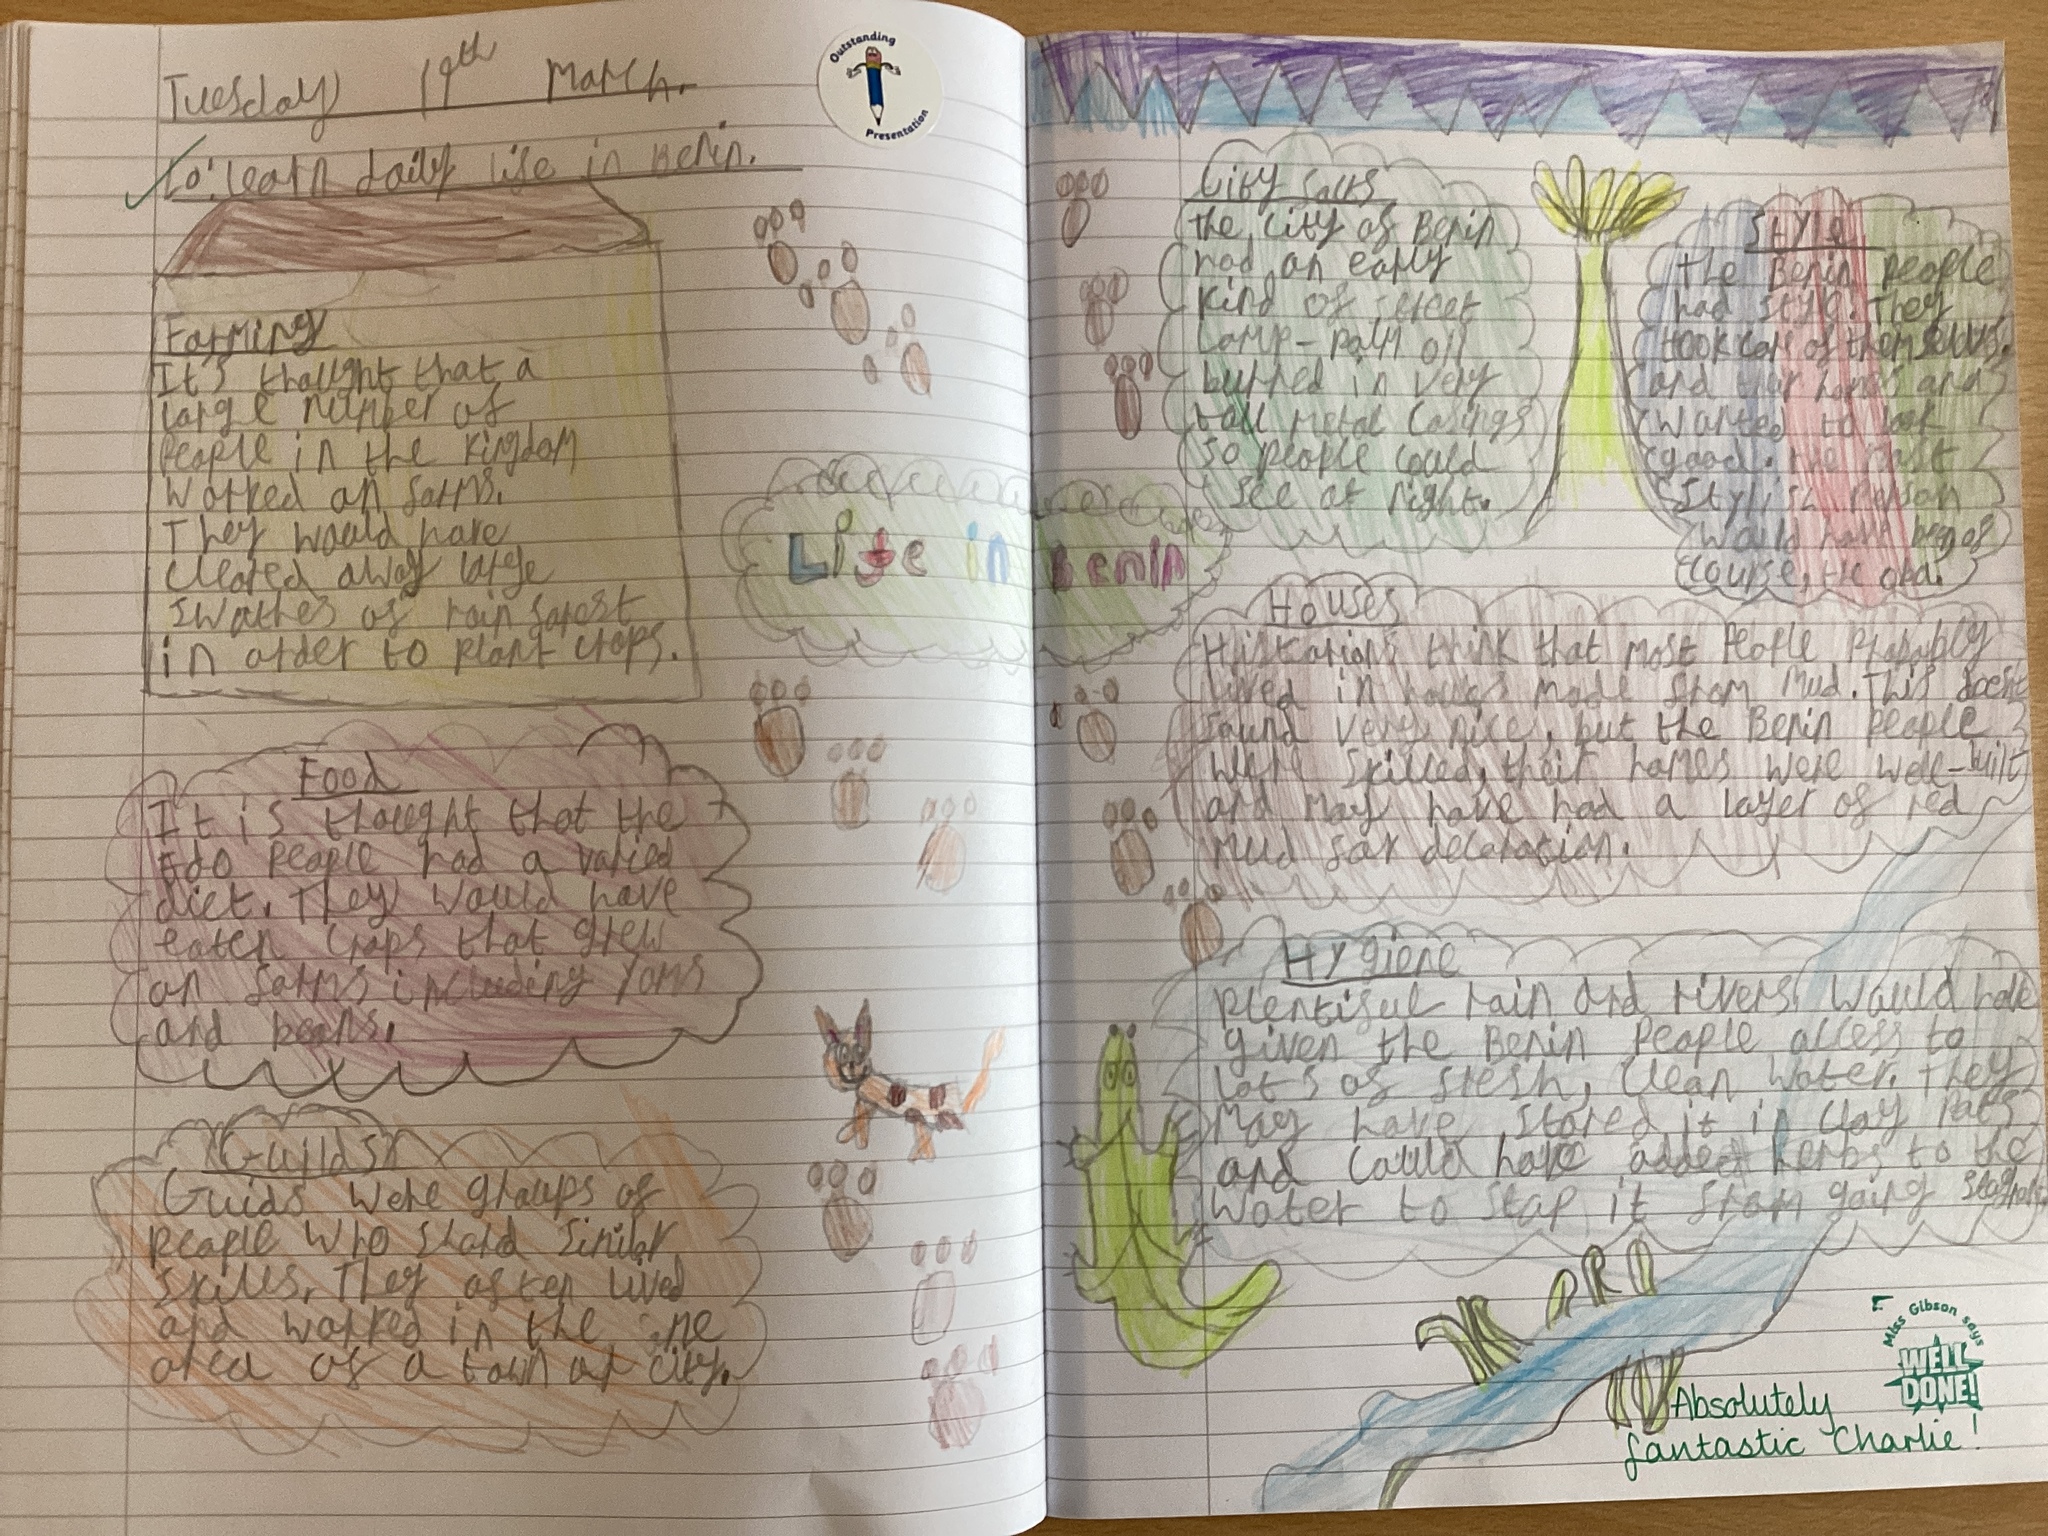 Tuesday 19th March.
Outstanding
Presentation
Lo: learn daily life in Benin.
Farming
It's thought that a
large number of
people in the Kingdom
worked on farms.
They would have
cleared away large
swathes of rain forest
in order to plant crops.
Food
It is thought that the
Edo people had a varied
diet. They would have
eaten crops that grew
on farms including yams
and beans.
Guilds
Guids were groups of
people who shard similar
skills. They often lived
and worked in the
area of a town or city.
Life in Benin
City facts
the city of Benin
had an early
kind of street
lamp - palm oil
burned in very
tall metal casings
so people could
see at night.
Style
the Benin people
had style. They
took care of themselves.
and their homes and
wanted to look
good. the most
stylish person
would have been of
course, the oba.
Houses
Histarians think that most people probably
lived in houses made from mud. This doesn't
sound very nice, but the Benin people
were skilled, their homes were well-built
and may have had a layer of red
mud for decoration.
Hygiene
Plentiful rain and rivers would have
given the Benin people access to
lots of fresh, clean water. They
may have stored it in clay pots
and could have added herbs to the
water to stop it from going
Miss Gibson says
WELL
DONE!
Absolutely
fantastic Charlie!